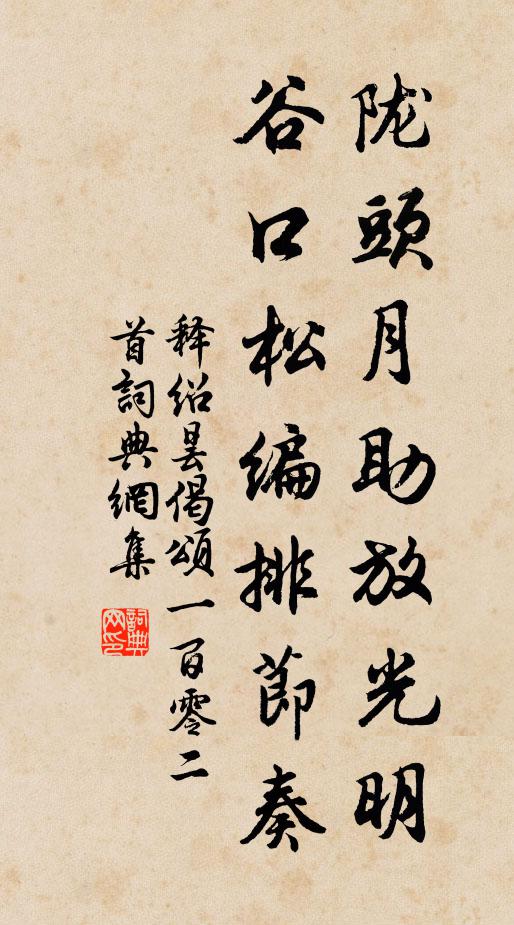 陇頭月助放光明
谷口松編排節奏
释绍昙偈頌一百零二
首詞典網集
詞典網印